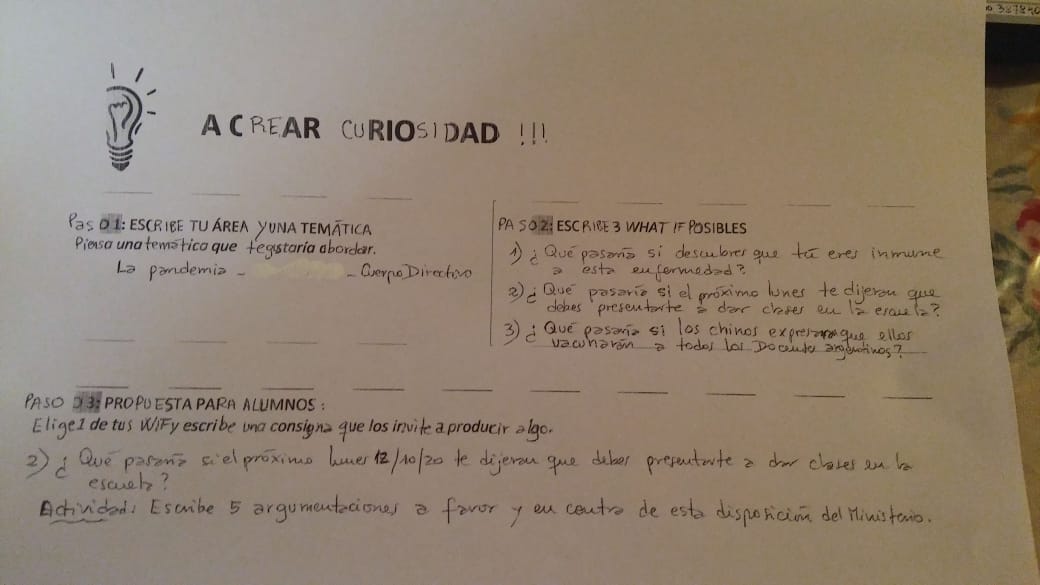 A CREAR CURIOSIDAD !!!
Paso 01: ESCRIBE TU ÁREA Y UNA TEMÁTICA
Piensa una temática que te gustaría abordar.
La pandemia - - Cuerpo Directivo
PASO 02: ESCRIBE 3 WHAT IF POSIBLES
1) ¿Qué pasaría si descubres que tú eres inmune
a esta enfermedad?
2) ¿Qué pasaría si el próximo lunes te dijeran que
debes presentarte a dar clases en la escuela?
3) ¿Qué pasaría si los chinos expresaran que ellos
vacunarán a todos los Docentes argentinos?
PASO 03: PROPUESTA PARA ALUMNOS:
Elige 1 de tus WIF y escribe una consigna que los invite a producir algo.
2) ¿Qué pasaría si el próximo lunes 12/10/20 te dijeran que debes presentarte a dar clases en la
escuela?
Actividad: Escribe 5 argumentaciones a favor y en contra de esta disposición del Ministerio.